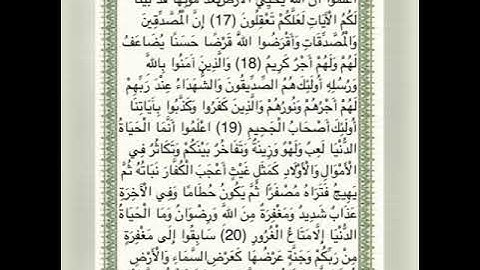 اعْلَمُوا أَنَّ اللَّهَ يُحْيِي الْأَرْضَ بَعْدَ مَوْتِهَا قَدْ بَيَّنَّا
لَكُمُ الْآيَاتِ لَعَلَّكُمْ تَعْقِلُونَ (17) إِنَّ الْمُصَّدِّقِينَ
وَالْمُصَّدِّقَاتِ وَأَقْرَضُوا اللَّهَ قَرْضًا حَسَنًا يُضَاعَفُ
لَهُمْ وَلَهُمْ أَجْرٌ كَرِيمٌ (18) وَالَّذِينَ آمَنُوا بِاللَّهِ
وَرُسُلِهِ أُولَئِكَ هُمُ الصِّدِّيقُونَ وَالشُّهَدَاءُ عِنْدَ رَبِّهِمْ
لَهُمْ أَجْرُهُمْ وَنُورُهُمْ وَالَّذِينَ كَفَرُوا وَكَذَّبُوا بِآيَاتِنَا
أُولَئِكَ أَصْحَابُ الْجَحِيمِ (19) اعْلَمُوا أَنَّمَا الْحَيَاةُ
الدُّنْيَا لَعِبٌ وَلَهْوٌ وَزِينَةٌ وَتَفَاخُرٌ بَيْنَكُمْ وَتَكَاثُرٌ فِي
الْأَمْوَالِ وَالْأَوْلَادِ كَمَثَلِ غَيْثٍ أَعْجَبَ الْكُفَّارَ نَبَاتُهُ ثُمَّ
يَهِيجُ فَتَرَاهُ مُصْفَرًّا ثُمَّ يَكُونُ حُطَامًا وَفِي الْآخِرَةِ
عَذَابٌ شَدِيدٌ وَمَغْفِرَةٌ مِنَ اللَّهِ وَرِضْوَانٌ وَمَا الْحَيَاةُ
الدُّنْيَا إِلَّا مَتَاعُ الْغُرُورِ (20) سَابِقُوا إِلَى مَغْفِرَةٍ
مِنْ رَبِّكُمْ وَجَنَّةٍ عَرْضُهَا كَعَرْضِ السَّمَاءِ وَالْأَرْضِ